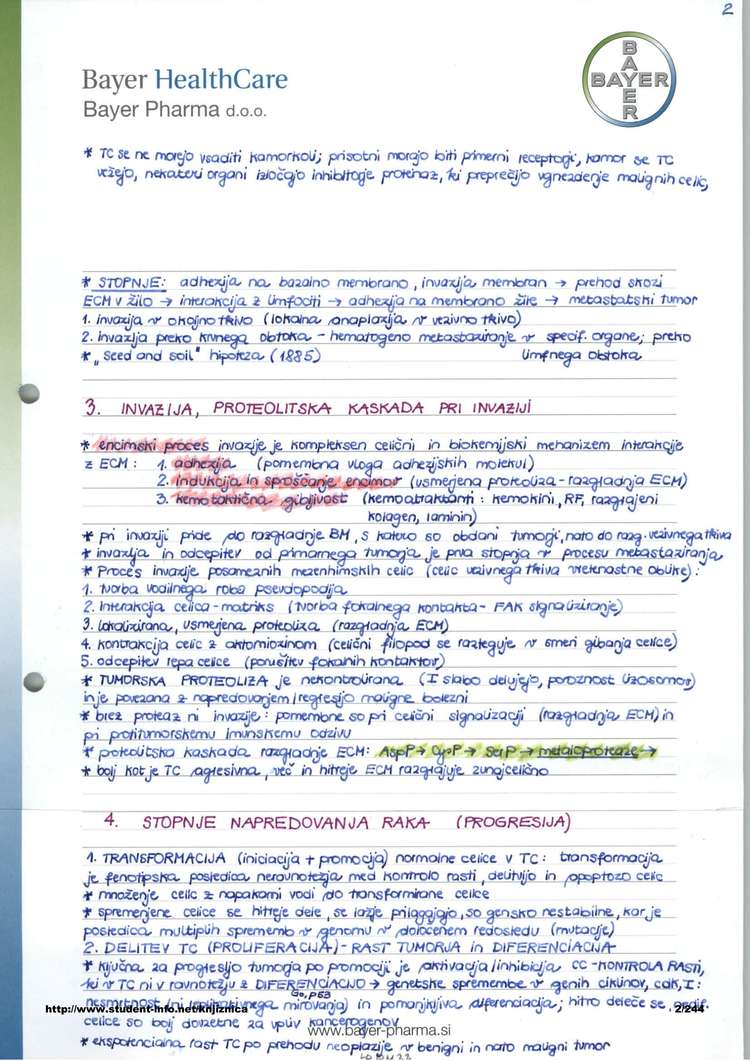 2
Bayer HealthCare
Bayer Pharma d.o.o.
BAYER
BAYER
* TC se ne morejo vsaditi kamorkoli; prisotni morajo biti primerni receptorji, kamor se TC
vežejo, nekateri organi izločajo inhibitorje proteinaz, ki preprečijo vgnezdenje malignih celic
* STOPNJE: adhezija na bazalno membrano, invazija membran → prehod skozi
ECM v žilo → interakcija z limfociti → adhezija na membrano žile → metastatski tumor
1. invazija v okojno tkivo (lokalna anaplazija v vezivno tkivo)
2. invazija preko krvnega obtoka - hematogeno metastaziranje v specif. organe; preko
limfnega obtoka
* "Seed and soil" hipoteza (1885)
3. INVAZIJA, PROTEOLITSKA KASKADA PRI INVAZIJI
* encimski proces invazije je kompleksen celični in biokemijski mehanizem interakcije
z ECM: 1. adhezija (pomembna vloga adhezijskih molekul)
2. indukcija in sproščanje encimov (usmerjena proteoliza - razgradnja ECM)
3. kemotaktična gibljivost (kemoatraktanti: kemokini, RF, razgrajeni
kolagen, laminin)
* pri invaziji pride do razgradnje BM, s katero so obdani tumorji, nato do razg. vezivnega tkiva
* invazija in odcepitev od primarnega tumorja je prva stopnja v procesu metastaziranja
* Proces invazije posameznih mezenhimskih celic (celic vezivnega tkiva vretenaste oblike):
1. tvorba vodilnega roba psevdopodija
2. Interakcija celica - matriks (tvorba fokalnega kontakta - FAK signaliziranje)
3. lokalizirana, usmerjena proteoliza (razgradnja ECM)
4. kontrakcija celic z aktomiozinom (celični filopod se razteguje v smeri gibanja celice)
5. odcepitev repa celice (porušitev fokalnih kontaktov)
* TUMORSKA PROTEOLIZA je nekontrolirana (I slabo delujejo, poroznost lizosomov)
in je povezana z napredovanjem/regresijo maligne bolezni
* brez proteaz ni invazije: pomembne so pri celični signalizaciji (razgradnja ECM) in
pri protitumorskemu imunskemu odzivu
* proteolitska kaskada razgradnje ECM: AspP → CysP → SerP → metaloproteaze →
* bolj kot je TC agresivna, več in hitreje ECM razgrajuje zunajcelično
4. STOPNJE NAPREDOVANJA RAKA (PROGRESIJA)
1. TRANSFORMACIJA (iniciacija + promocija) normalne celice v TC: transformacija
je fenotipska posledica neravnotežja med kontrolo rasti, delitvijo in apoptozo celic
* množenje celic z napakami vodi do transformirane celice
* spremenjene celice se hitreje dele, se lažje prilagajajo, so gensko nestabilne, kar je
posledica multiplih sprememb v genomu v določenem redosledu (mutacije)
2. DELITEV TC (PROLIFERACIJA) - RAST TUMORJA in DIFERENCIACIJA
* ključna za progresijo tumorja po promociji je aktivacija/inhibicija CC - KONTROLA RASTI,
ki v TC ni v ravnotežju z DIFERENCIACIJO → genetske spremembe v genih ciklinov, cdk, I:
G0, p53
nesmrtnost (ni replikativnega mirovanja) in pomanjkljiva diferenciacija; hitro deleče se
http://www.student-info.net/knjiznica
2/244
celice so bolj dovzetne za vpliv kancerogenov
www.bayer-pharma.si
* eksponencialna rast TC po prehodu neoplazije v benigni in nato maligni tumor